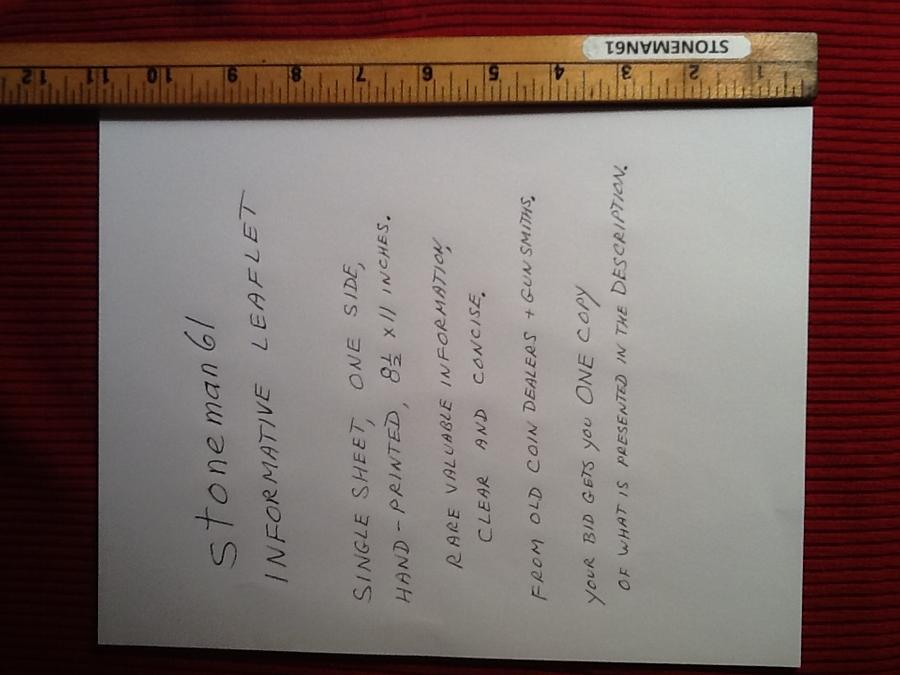 STONEMAN61
1 2 3 4 5 6 7 8 9 10 11 12
Stoneman61
INFORMATIVE LEAFLET
SINGLE SHEET, ONE SIDE,
HAND-PRINTED, 8½ x 11 INCHES.
RARE VALUABLE INFORMATION,
CLEAR AND CONCISE.
FROM OLD COIN DEALERS + GUNSMITHS.
YOUR BID GETS YOU ONE COPY
OF WHAT IS PRESENTED IN THE DESCRIPTION.